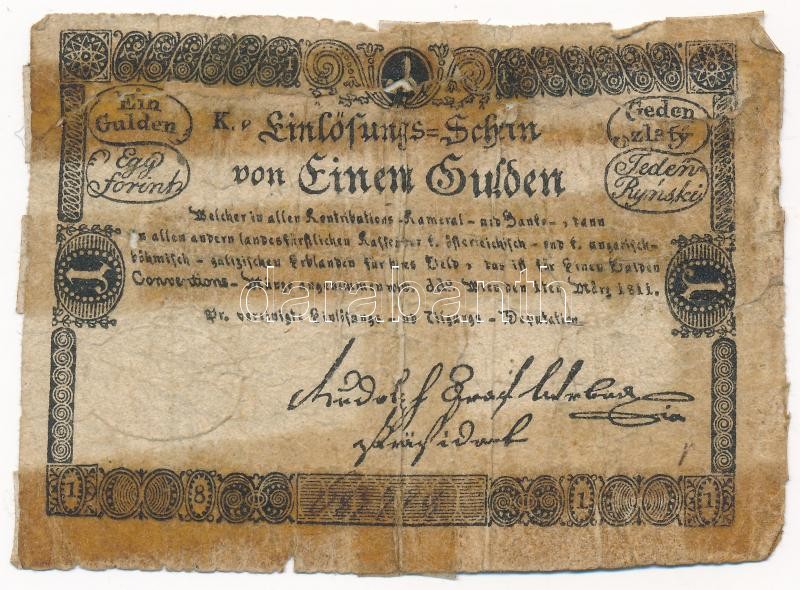 1 1
Ein
Gulden
Egy
forint
K.
Einlösungs=Schein
von Einem Gulden
Geden
zlatý
Jeden
Ryński
Welcher in allen Kontributions-Kameral-und Banko-, dann
in allen andern landesfürstlichen Kassen der k. österreichisch-und k. ungarisch-
böhmisch-galizischen Erblanden für bares Geld, das ist für Einen Gulden
Conventions-Münze angenommen wird. Wien den 1ten März 1811.
Pr. vereinigte Einlösungs-und Tilgungs-Deputation
1 1
Rudolph Graf Wrbna
Präsident
1 8 1 1
darabanth